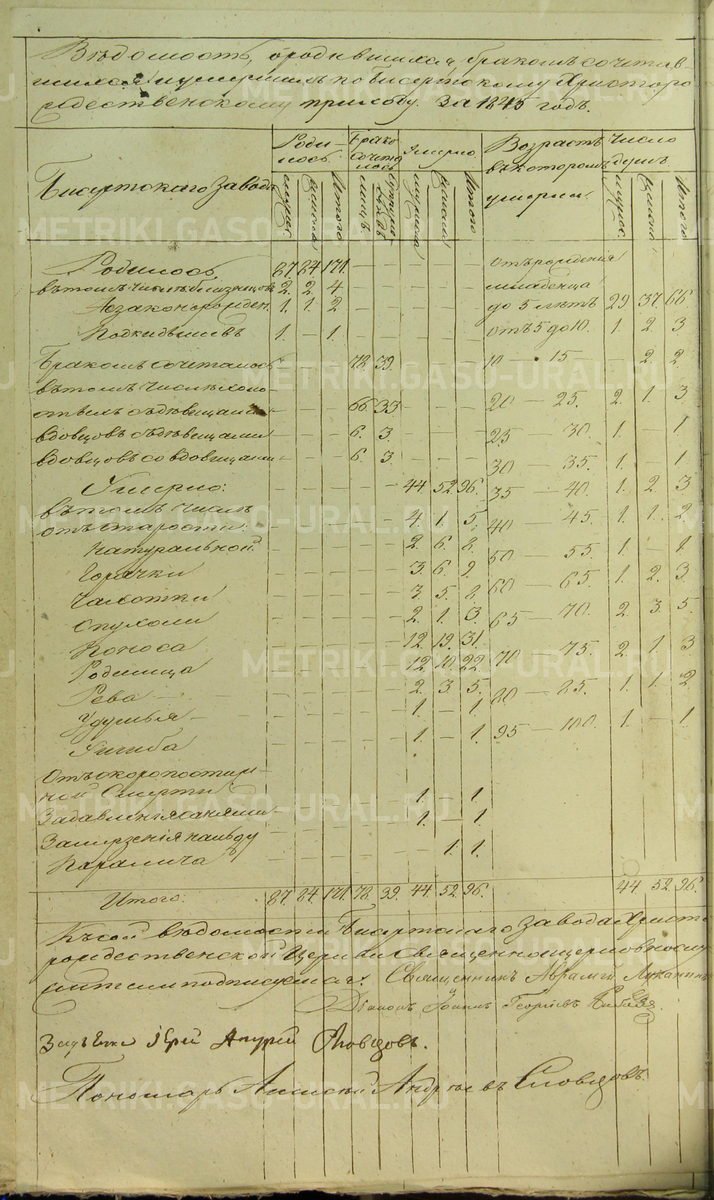 Вѣдомость, о родившихся, бракомъ сочетав-
шихся и умершихъ по Бисертскому Христоро-
рождественскому приходу за 1845 годъ.
Бисертскаго завода
Роди-
лось.
Брако
сочета
лось
Умерло
Возрастъ
въ которомъ
умерли
Число
душъ
мужес. женска Итого
Родилось 87. 84. 171. — — — — —
въ томъ числѣ близнецовъ 2. 2. 4
Незаконорожден. 1. 1. 2
Подкидышевъ 1. - 1.
Бракомъ сочеталось 78. 39.
въ томъ числѣ холо-
стыхъ съ дѣвицами 66 33
вдовцовъ съ дѣвицами 6. 3.
вдовцовъ со вдовицами 6. 3.
Умерло: 44. 52. 96.
въ томъ числѣ
отъ старости: 4. 1. 5.
Натуральной 2. 6. 8.
Горячки 3. 6. 9.
Чахотки 3. 5. 8.
Опухоли 2. 1. 3.
Поноса 12. 19. 31.
Родимца 12. 10. 22
Рева 2. 3. 5.
Удушья 1. - 1.
Ушиба 1. - 1.
Отъ скоропостиж-
ной Смерти 1. 1
1. - 1.
Паралича 1. 1.
отъ рожденія
младенца
до 5 лѣтъ 29. 37. 66
отъ 5 до 10. 1. 2. 3
10 — 15 - 2. 2
20 — 25. 2. 1. 3
25 — 30 1. - 1.
30 — 35. 1. - 1.
35 — 40. 1. 2. 3
40 45. 1. 1. 2
50 — 55. 1. - 1
60 — 65. 1. 2. 3
65 — 70. 2. 3. 5.
70 — 75. 2. 1. 3
1. 1. 2
95 — 100. 1. - 1
Итого. 87. 84. 171. 78. 39. 44. 52. 96. 44. 52. 96.
Къ сей вѣдомости Бисертскаго завода Христо
рождественской Церкви священноцерковнослу
жители подписуемся: Священникъ
Діаконъ Іоаннъ Георгіевъ
Іерей Андрей Словцовъ.
Пономарь Алексѣй Андреевъ Словцовъ.
METRIKI.GASO-URAL.RU